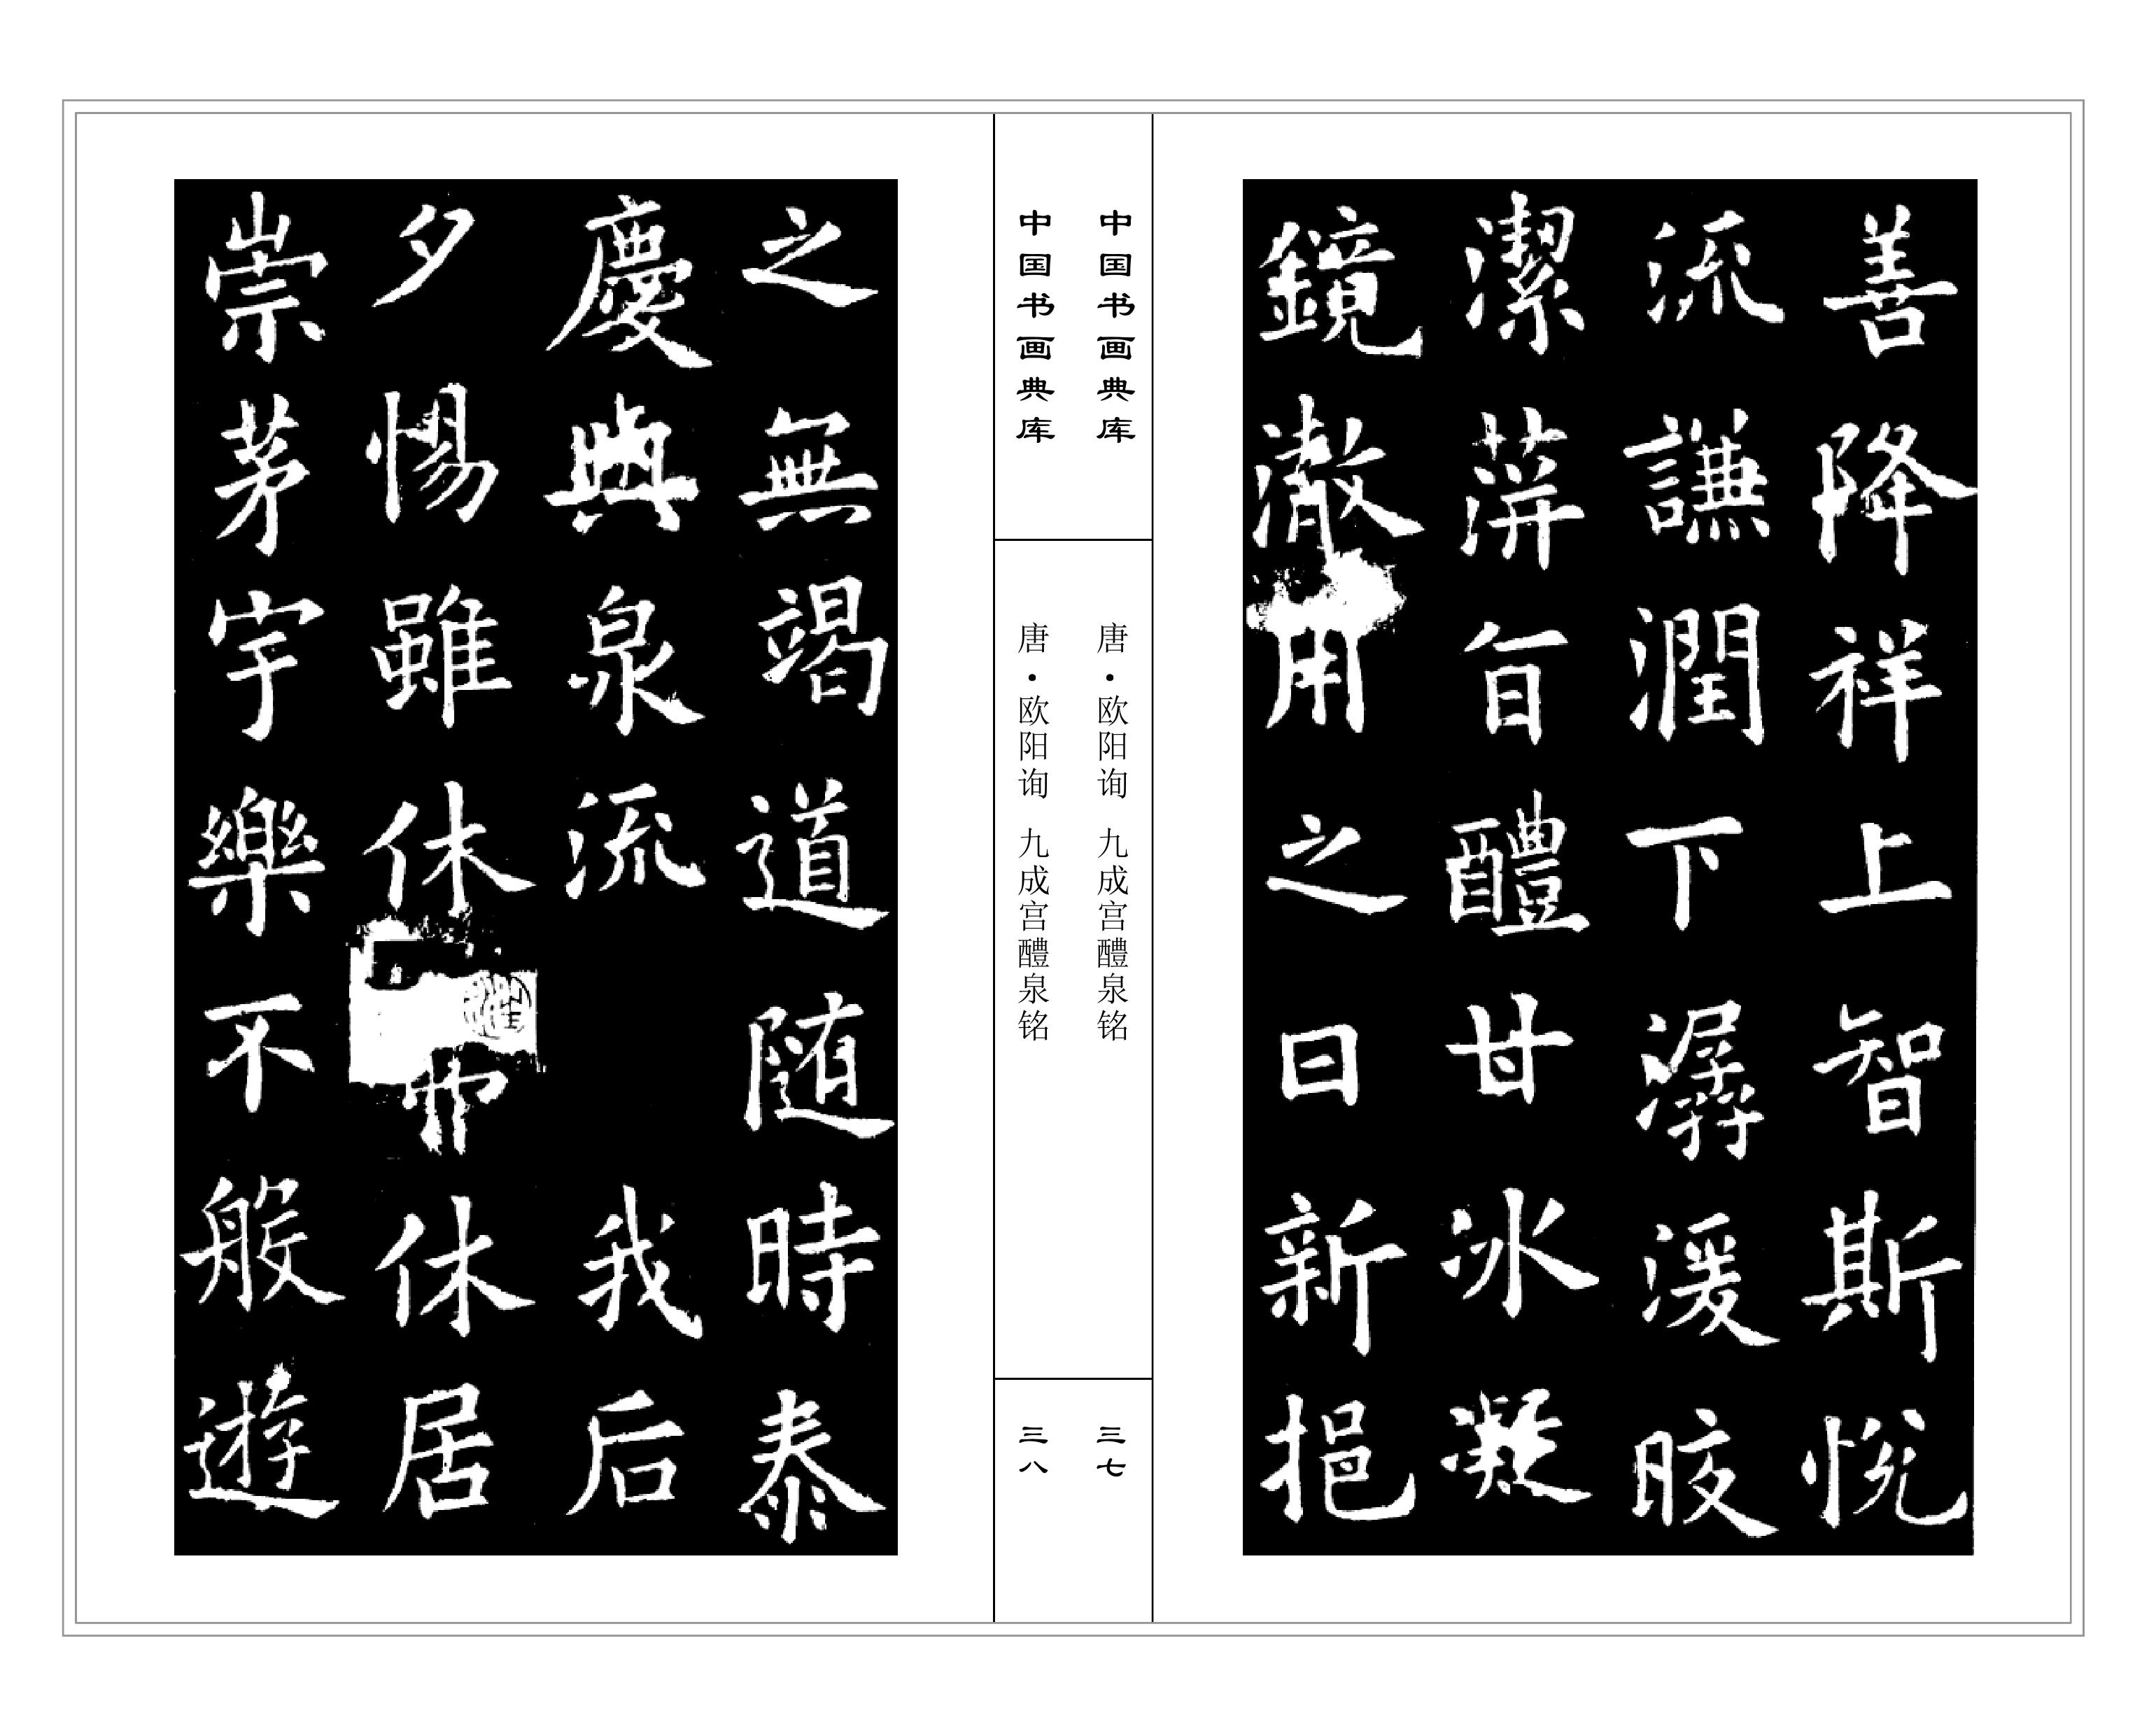 善降祥上智斯悅
流謙潤下潺湲皎
潔蓱旨醴甘冰凝
鏡澈用之日新挹
中国书画典库
唐·欧阳询 九成宫醴泉铭
三七
中国书画典库
唐·欧阳询 九成宫醴泉铭
三八
之無竭道随時泰
慶與泉流我后
夕惕雖休弗休居
崇茅宇樂不般遊